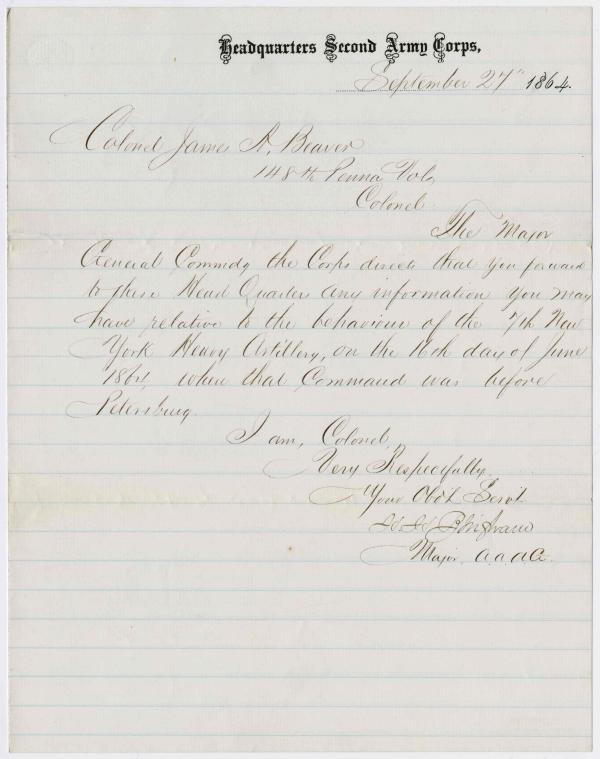 Headquarters Second Army Corps,
September 27" 1864.
Colonel James A. Beaver
148th Penna Vols
Colonel
The Major
General Commdg the Corps directs that you forward
to these Head Quarters any information you may
have relative to the behaviour of the 7th New
York Heavy Artillery, on the 16th day of June
1864, when that Command was before
Petersburg.
I am, Colonel,
Very Respectfully
Your Obdt Servt
Bingham
Major. a.a.a.G.